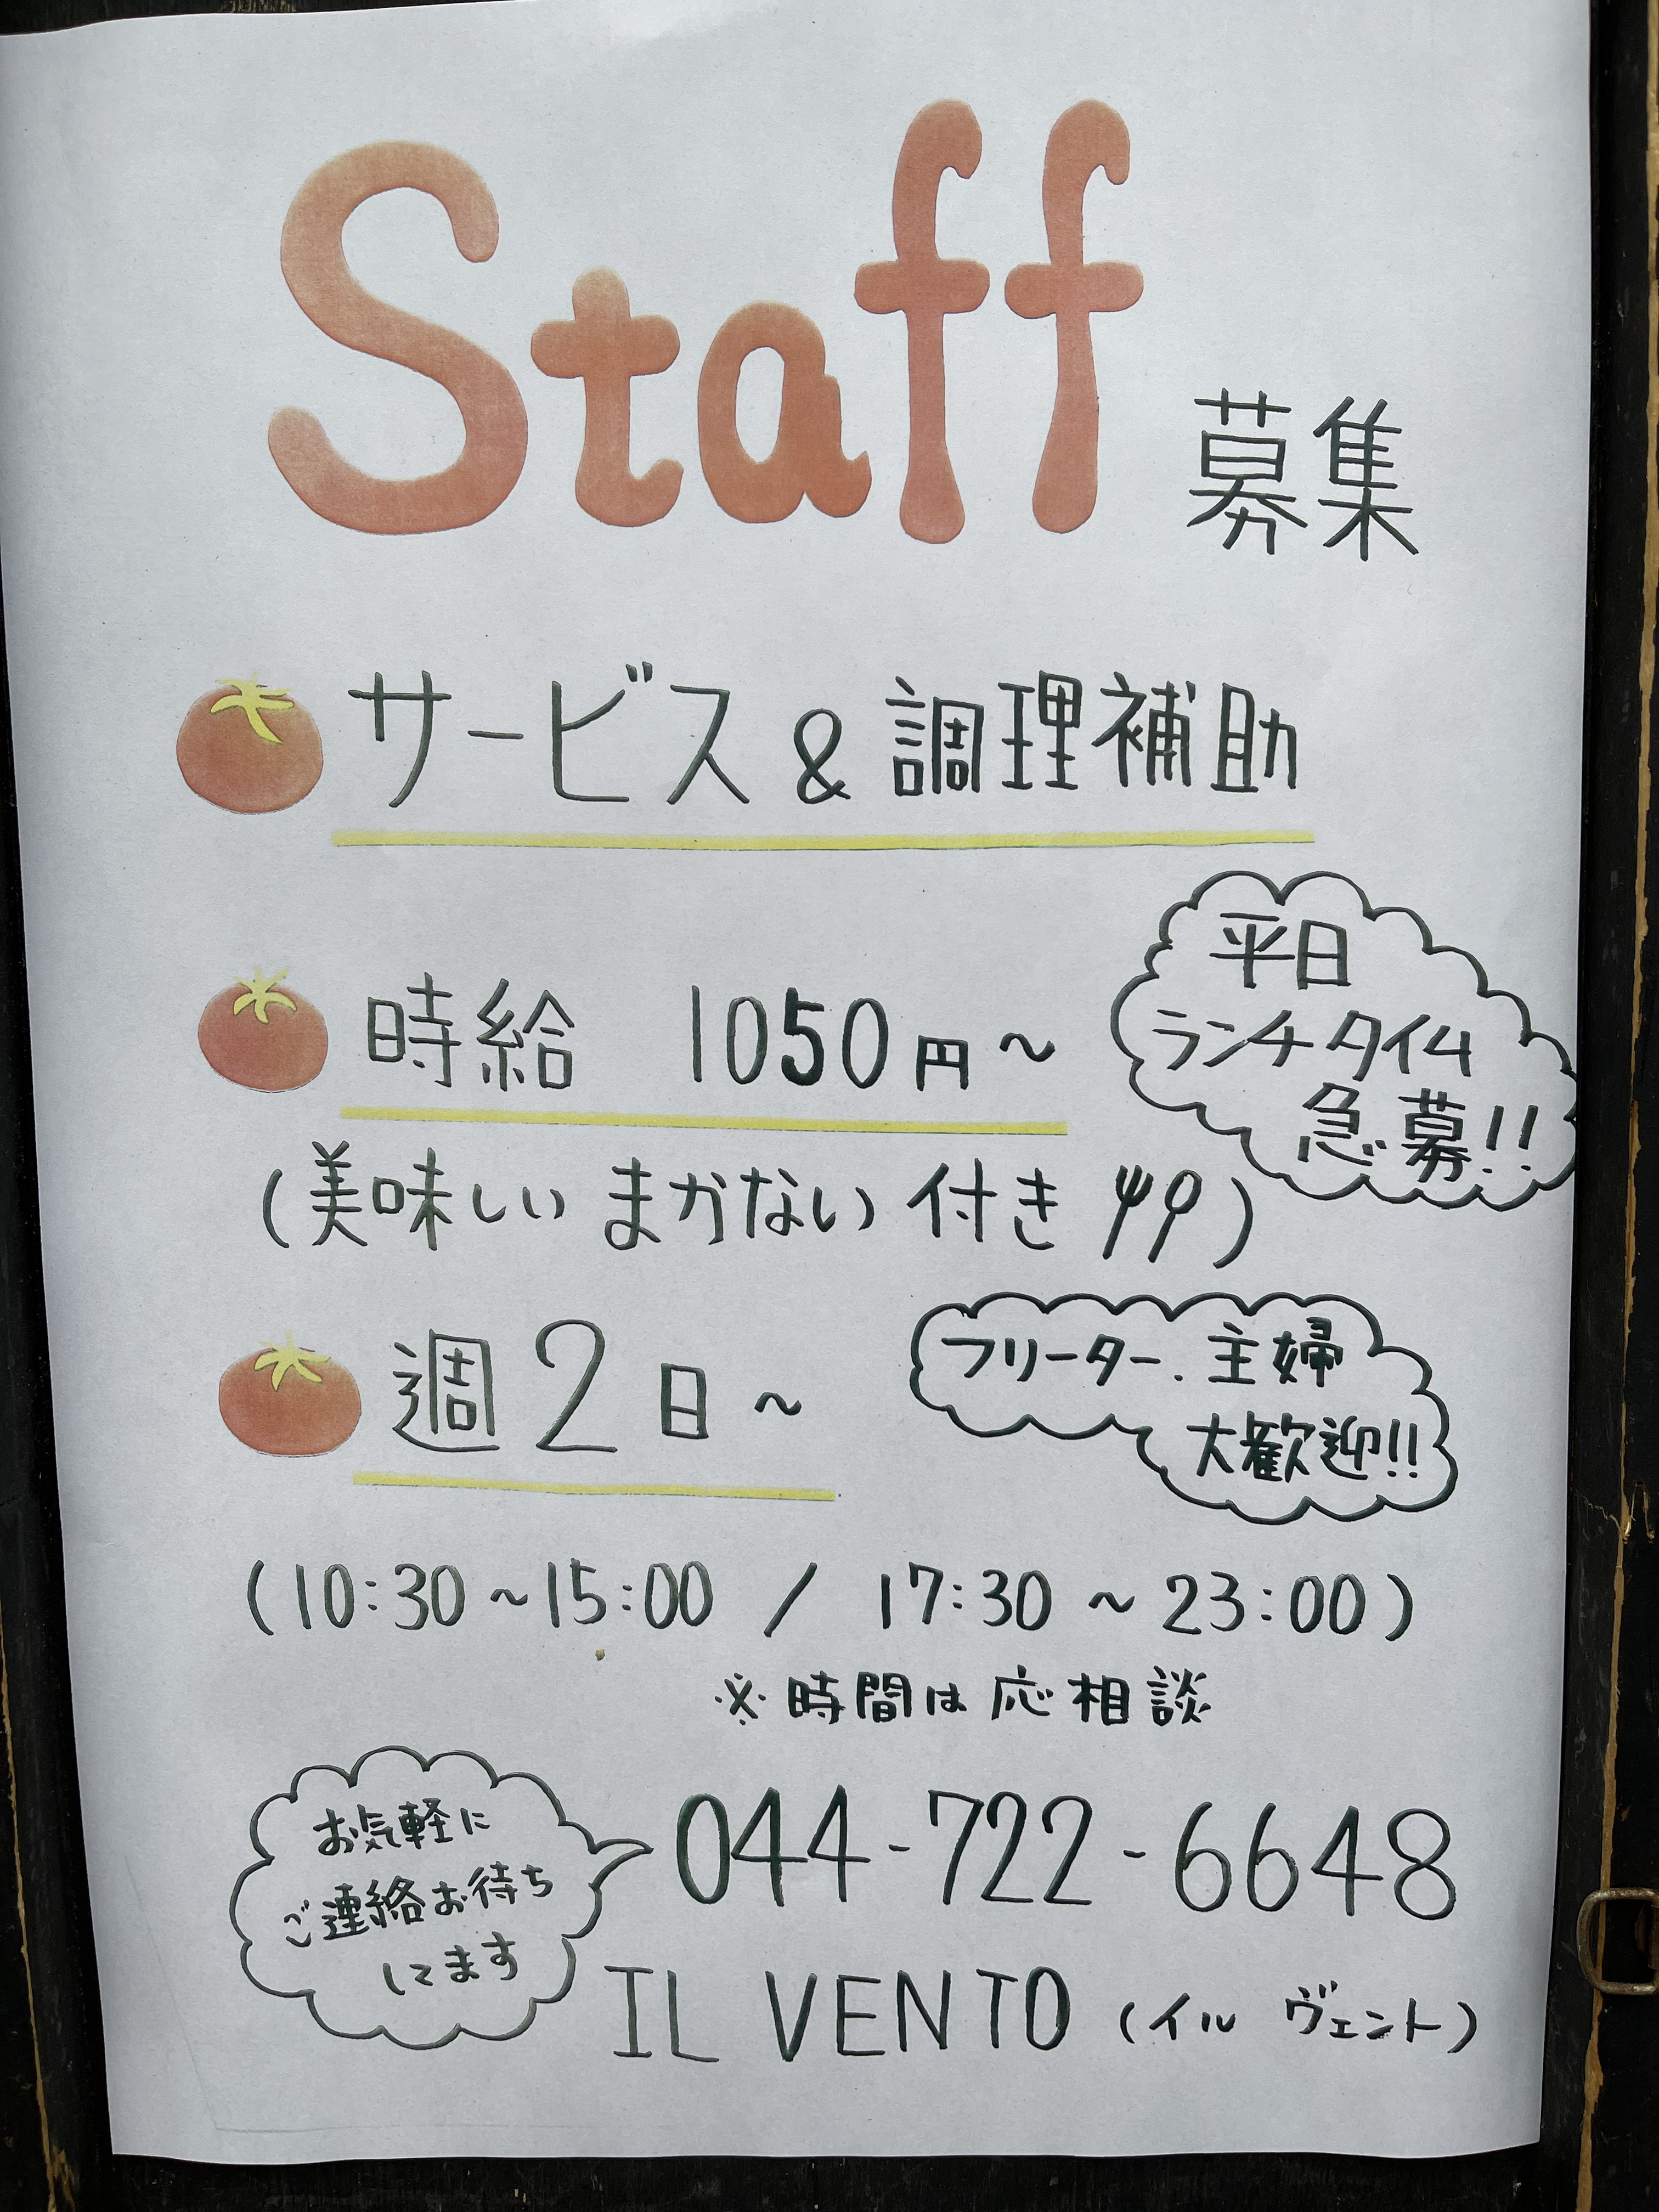 Staff 募集
サービス & 調理補助
時給 1050円~
平日
ランチタイム
急募!!
(美味しい まかない 付き)
週2日~
フリーター、主婦
大歓迎!!
(10:30~15:00 / 17:30~23:00)
※時間は応相談
お気軽に
ご連絡お待ち
してます
044-722-6648
IL VENTO (イル ヴェント)